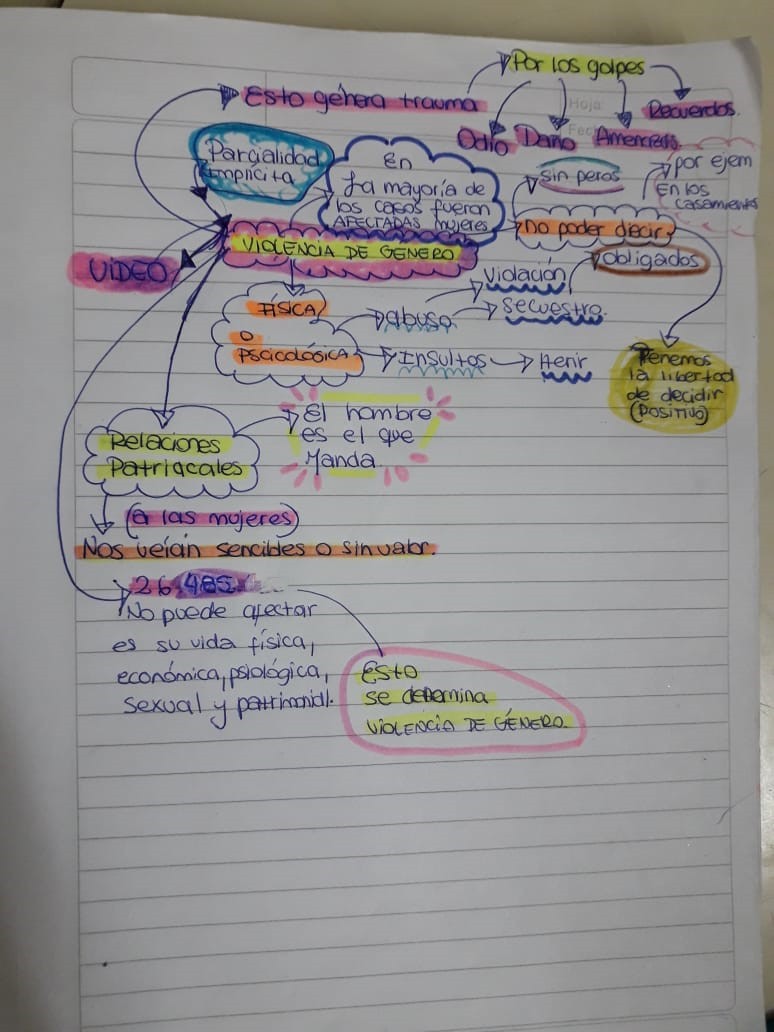 Por los golpes
Esto génera trauma
Hoja:
Recuerdos.
Fec
Odio Daño Amenazas.
Parcialidad
Implícita
En
La mayoría de
los casos fueron
AFECTADAS mujeres
sin peros
por ejem
En los
casamientos
no poder decir
VIOLENCIA DE GÉNERO
VIDEO
violación
obligados
FÍSICA
O
PSCICOLÓGICA
abuso
secuestro.
Insultos
Herir
Tenemos
la libertad
de decidir
(POSITIVO)
El hombre
es el que
Manda
Relaciones
Patriacales
(a las mujeres)
Nos veían sencibles o sin valor.
26.485.
No puede afectar
es su vida física,
económica, psiológica,
sexual y patrimonial.
Esto
se determina
VIOLENCIA DE GÉNERO.